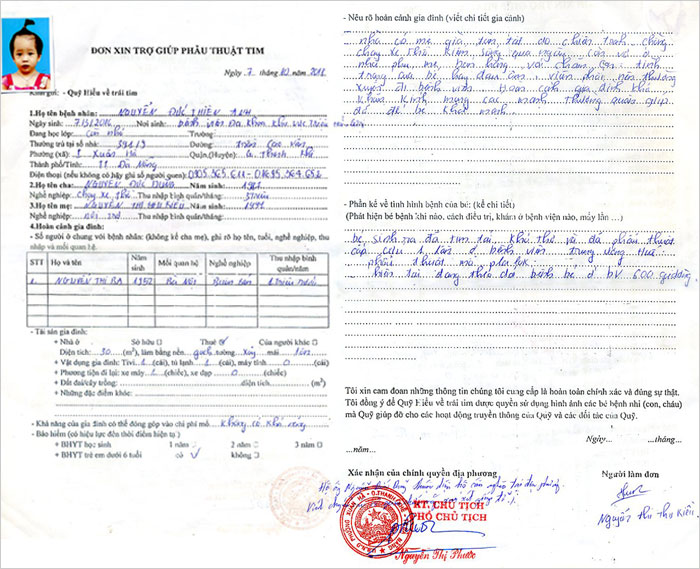 ĐƠN XIN TRỢ GIÚP PHẪU THUẬT TIM
Ngày 7 tháng 10 năm 2018
Kính gửi: - Quỹ Hiểu về trái tim
1.Họ tên bệnh nhân: NGUYỄN ĐỨC THIÊN ANH
Ngày sinh: Nơi sinh: bệnh viện Đa Khoa Khu vực
Đang học lớp: còn nhỏ Trường:
Thường trú tại số nhà: Đường: Trần Cao Vân
Phường (xã): Xuân Hà Quận (Huyện): Q. Thanh Khê
Thành phố/Tỉnh: TP Đà Nẵng
Điện thoại (nếu không có hãy ghi số người quen):
2.Họ tên cha: NGUYỄN ĐỨC DŨNG Năm sinh:
Nghề nghiệp: chạy xe thồ Thu nhập bình quân/tháng:
3.Họ tên mẹ: NGUYỄN THỊ THU KIỀU Năm sinh:
Nghề nghiệp: nội trợ Thu nhập bình quân/tháng:
4.Hoàn cảnh gia đình:
- Số người ở chung với bệnh nhân: (không kể cha mẹ), ghi rõ họ tên, tuổi, nghề nghiệp, thu nhập
và mối quan hệ.
STT Họ và tên Năm sinh Mối quan hệ Nghề nghiệp Thu nhập bình quân/năm
1. NGUYỄN THỊ BA 1952 Bà Nội Buôn bán
- Tài sản gia đình:
+ Nhà ở Sở hữu □ Thuê ✓ Của người khác □
Diện tích: 30 (m²), làm bằng nền gạch tường xây mái tôn
+ Vật dụng gia đình: Tivi 1 (cái), tủ lạnh 1 (cái), máy tính 0 (cái)
+ Phương tiện đi lại: xe máy 1 (chiếc), xe đạp 0 (chiếc)
+ Đất đai/cây trồng: diện tích (m²)
+ Những đặc điểm khác:
- Khả năng của gia đình có thể đóng góp vào chi phí mổ: Không có khả năng
- Bảo hiểm (có hiệu lực đến thời điểm hiện tại)
+ BHYT học sinh 1 năm □ 2 năm □ 3 năm □
+ BHYT trẻ em dưới 6 tuổi có ✓ không □
- Nêu rõ hoàn cảnh gia đình (viết chi tiết gia cảnh)
nhà có mẹ già chồng
chạy xe thồ kiếm sống qua ngày, còn vợ ở
nhà phụ mẹ bán hàng và chăm con. tình
trạng của bé hay đau ốm, viêm phổi nên thường
xuyên đi bệnh viện. Hoàn cảnh gia đình khó
khăn kính mong các mạnh thường quân giúp
đỡ để bé khoẻ mạnh.
- Phần kể về tình hình bệnh của bé: (kể chi tiết)
(Phát hiện bé bệnh khi nào, cách điều trị, khám ở bệnh viện nào, mấy lần ...)
bé sinh ra đã tim tái, khó thở và đã phẫu thuật
cấp cứu lần ở bệnh viện Trung ương Huế
phẫu thuật
hiện tại đang theo dõi bệnh bé ở BV 600 giường
Tôi xin cam đoan những thông tin chúng tôi cung cấp là hoàn toàn chính xác và đúng sự thật.
Tôi đồng ý để Quỹ Hiểu về trái tim được quyền sử dụng hình ảnh các bé bệnh nhi (con, cháu)
mà Quỹ giúp đỡ cho các hoạt động truyền thông của Quỹ và các đối tác của Quỹ.
Ngày... ...tháng...
...năm...
Xác nhận của chính quyền địa phương
Người làm đơn
KT. CHỦ TỊCH
PHÓ CHỦ TỊCH
Nguyễn Thị Thu Kiều
Nguyễn Thị Phước